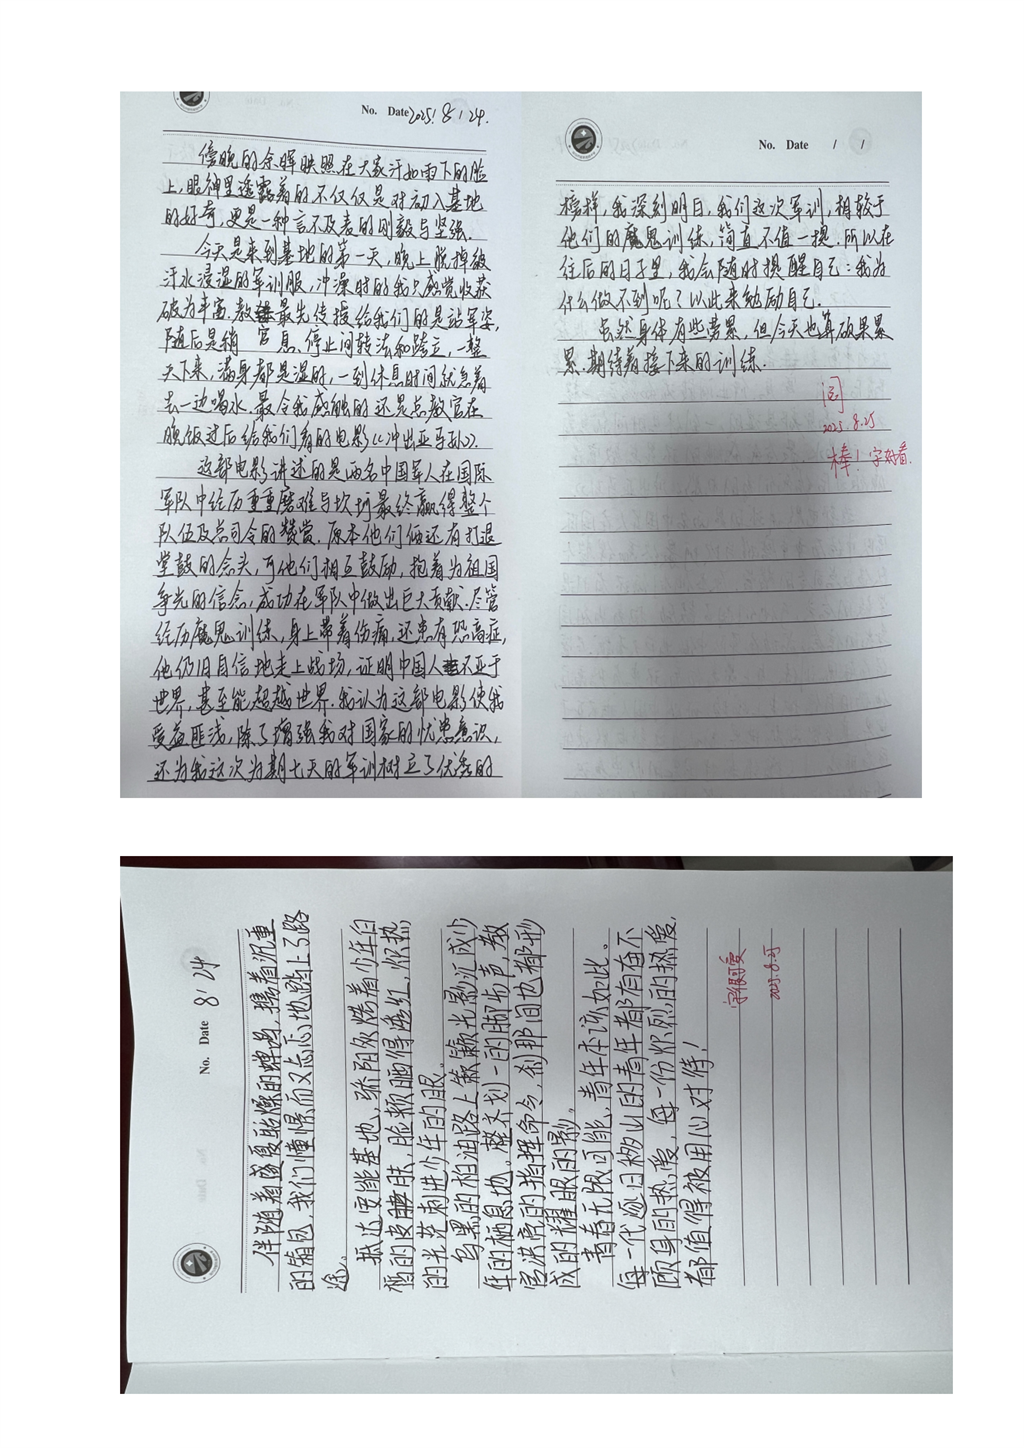 No. Date 2025/ 8 / 24.
傍晚的余晖映照在大家汗如雨下的脸
上,眼神里透露着的不仅仅是对初入基地
的好奇,更是一种言不及表的刚毅与坚强.
今天是来到基地的第一天,晚上脱掉被
汗水浸湿的军训服,冲澡时的我只感觉收获
破为丰富.教 最先传授给我们的是站军姿,
随后是稍 官 息、停止间转法和跨立,一整
天下来,满身都是湿的,一到休息时间就急着
去一边喝水.最令我感触的还是总教官在
晚饭过后给我们看的电影《冲出亚马孙》.
这部电影讲述的是两名中国军人在国际
军队中经历重重磨难与坎坷最终赢得整个
队伍及总司令的赞赏.原本他们俩还有打退
堂鼓的念头,可他们相互鼓励,抱着为祖国
争光的信念,成功在军队中做出巨大贡献.尽管
经历魔鬼训练,身上带着伤痛,还患有恐高症,
他仍旧自信地走上战场,证明中国人 不亚于
世界,甚至能超越世界.我认为这部电影使我
受益匪浅,除了增强我对国家的忧患意识,
还为我这次为期七天的军训树立了优秀的
No. Date / /
榜样,我深刻明白,我们这次军训,相较于
他们的魔鬼训练,简直不值一提.所以在
往后的日子里,我会随时提醒自己:我为
什么做不到呢?以此来勉励自己.
虽然身体有些劳累,但今天也算硕果累
累.期待着接下来的训练.
阅
2025.8.25
棒!字好看.
No. Date 8 / 24
伴随着盛夏聒燥的蝉鸣,携着沉重
的箱包,我们憧憬而又忐忑地踏上了路
途。
抵达安能基地,骄阳炙烤着少年白
皙的皮肤,脸颊晒得透红,炽热
的光茫刺进少年的眼。
乌黑的柏油路上簌簌光影沉成少
年的栖息地。整齐划一的脚步声,教
官洪亮的指挥命令,刹那间也都形
成的耀眼的影。
青春无限可能,青年本该如此。
每一代逐日移山的青年都有奋不
顾身的热爱,每一份炽烈的热爱,
都值得被用心对待!
字很可爱
2025.8.25